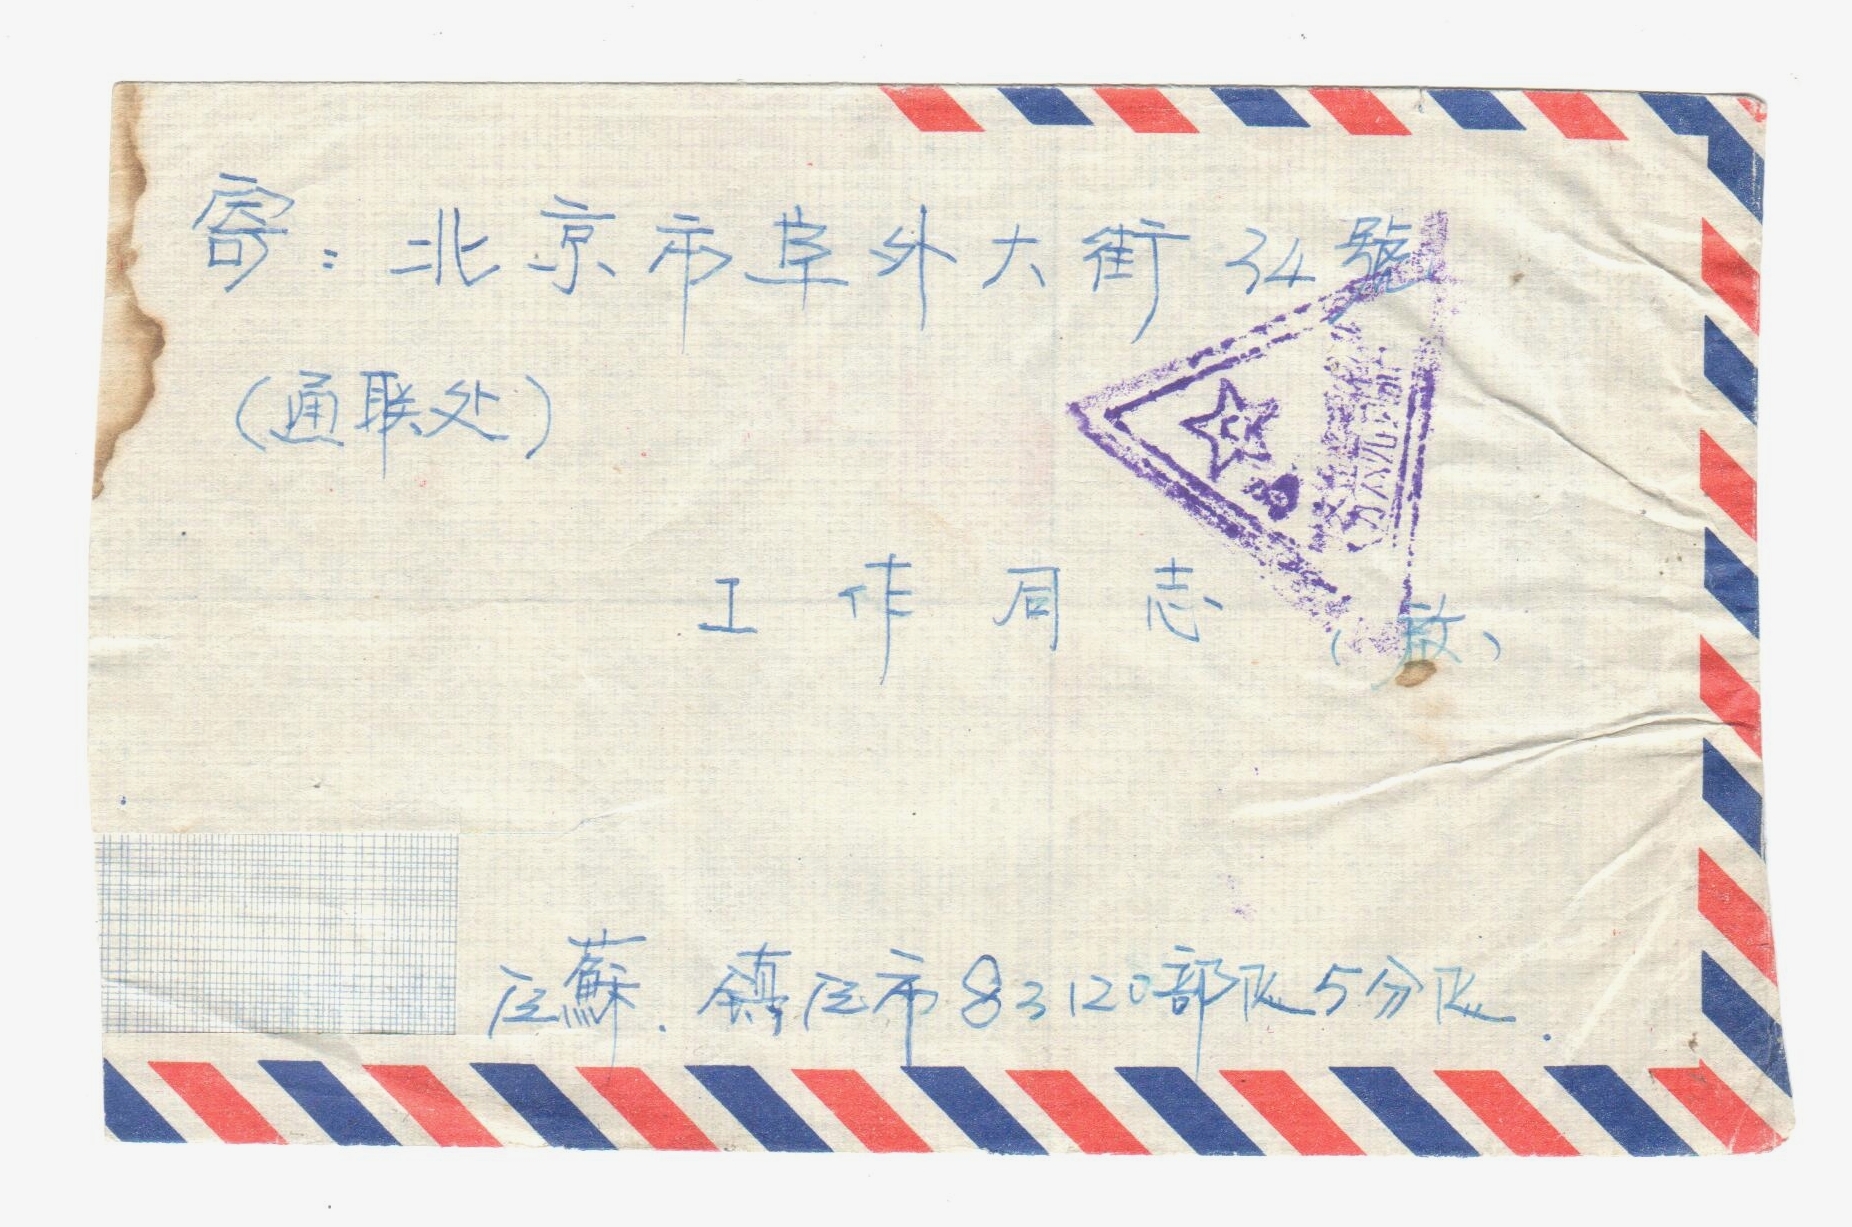 寄：北京市阜外大街34號
（通联处）
工作同志（啟）
江蘇．鎮江市83120部队5分队．